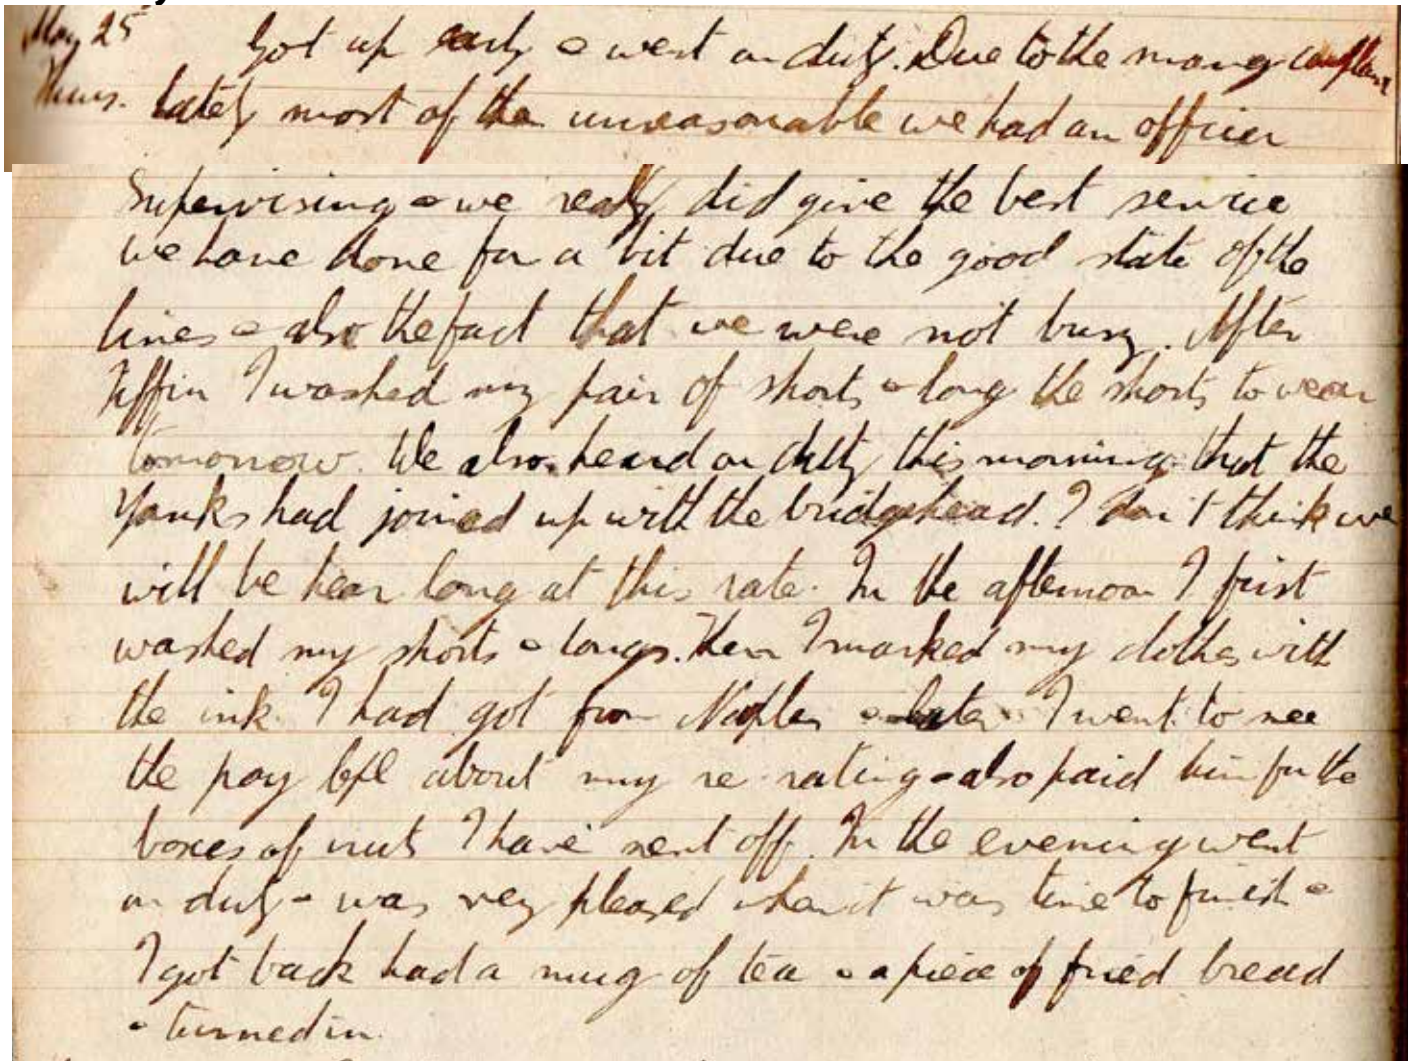 May 25 Got up early & went on duty. Due to the many complaints
Thurs. lately most of them unreasonable we had an officer
supervising & we really did give the best service
we have done for a bit due to the good state of the
lines & also the fact that we were not busy. After
tiffin I washed my pair of shorts & long the shorts to wear
tomorrow. We also heard on duty this morning that the
Yanks had joined up with the bridgehead. I don't think we
will be hear long at this rate. In the afternoon I first
washed my shorts & longs. Then I marked my clothes with
the ink I had got from Naples & later I went to see
the pay Cpl about my re-rating & also paid him for the
boxes of nuts I have sent off. In the evening went
on duty & was very pleased when it was time to finish &
I got back had a mug of tea & a piece of fried bread
& turned in.